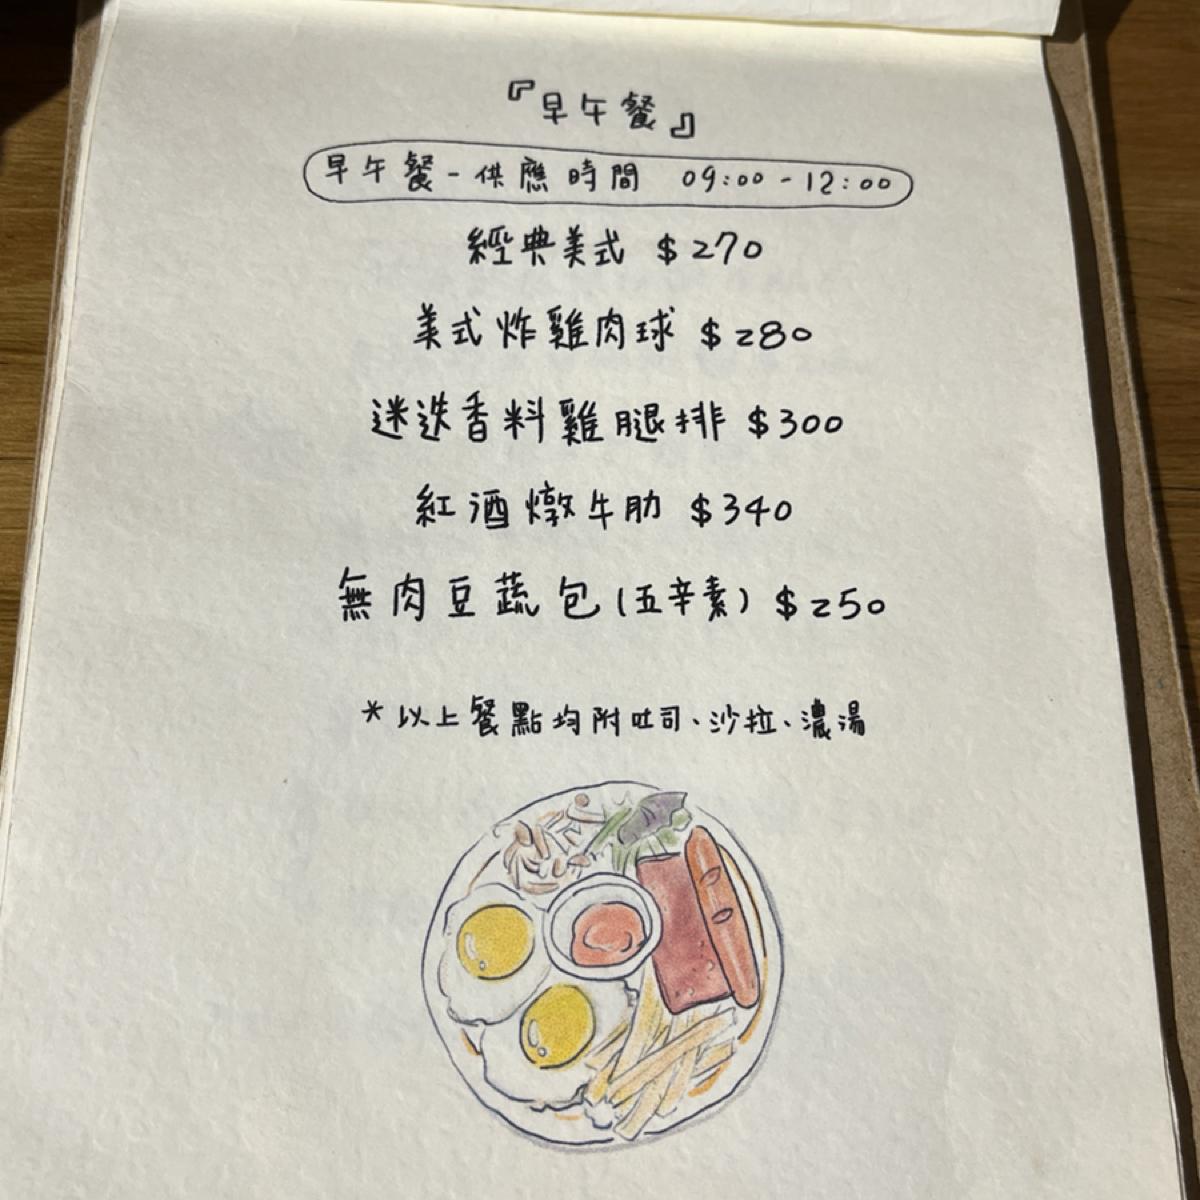 『早午餐』
早午餐-供應時間 09:00-12:00
經典美式 $270
美式炸雞肉球 $280
迷迭香料雞腿排 $300
紅酒燉牛肋 $340
無肉豆蔬包(五辛素) $250
*以上餐點均附吐司、沙拉、濃湯